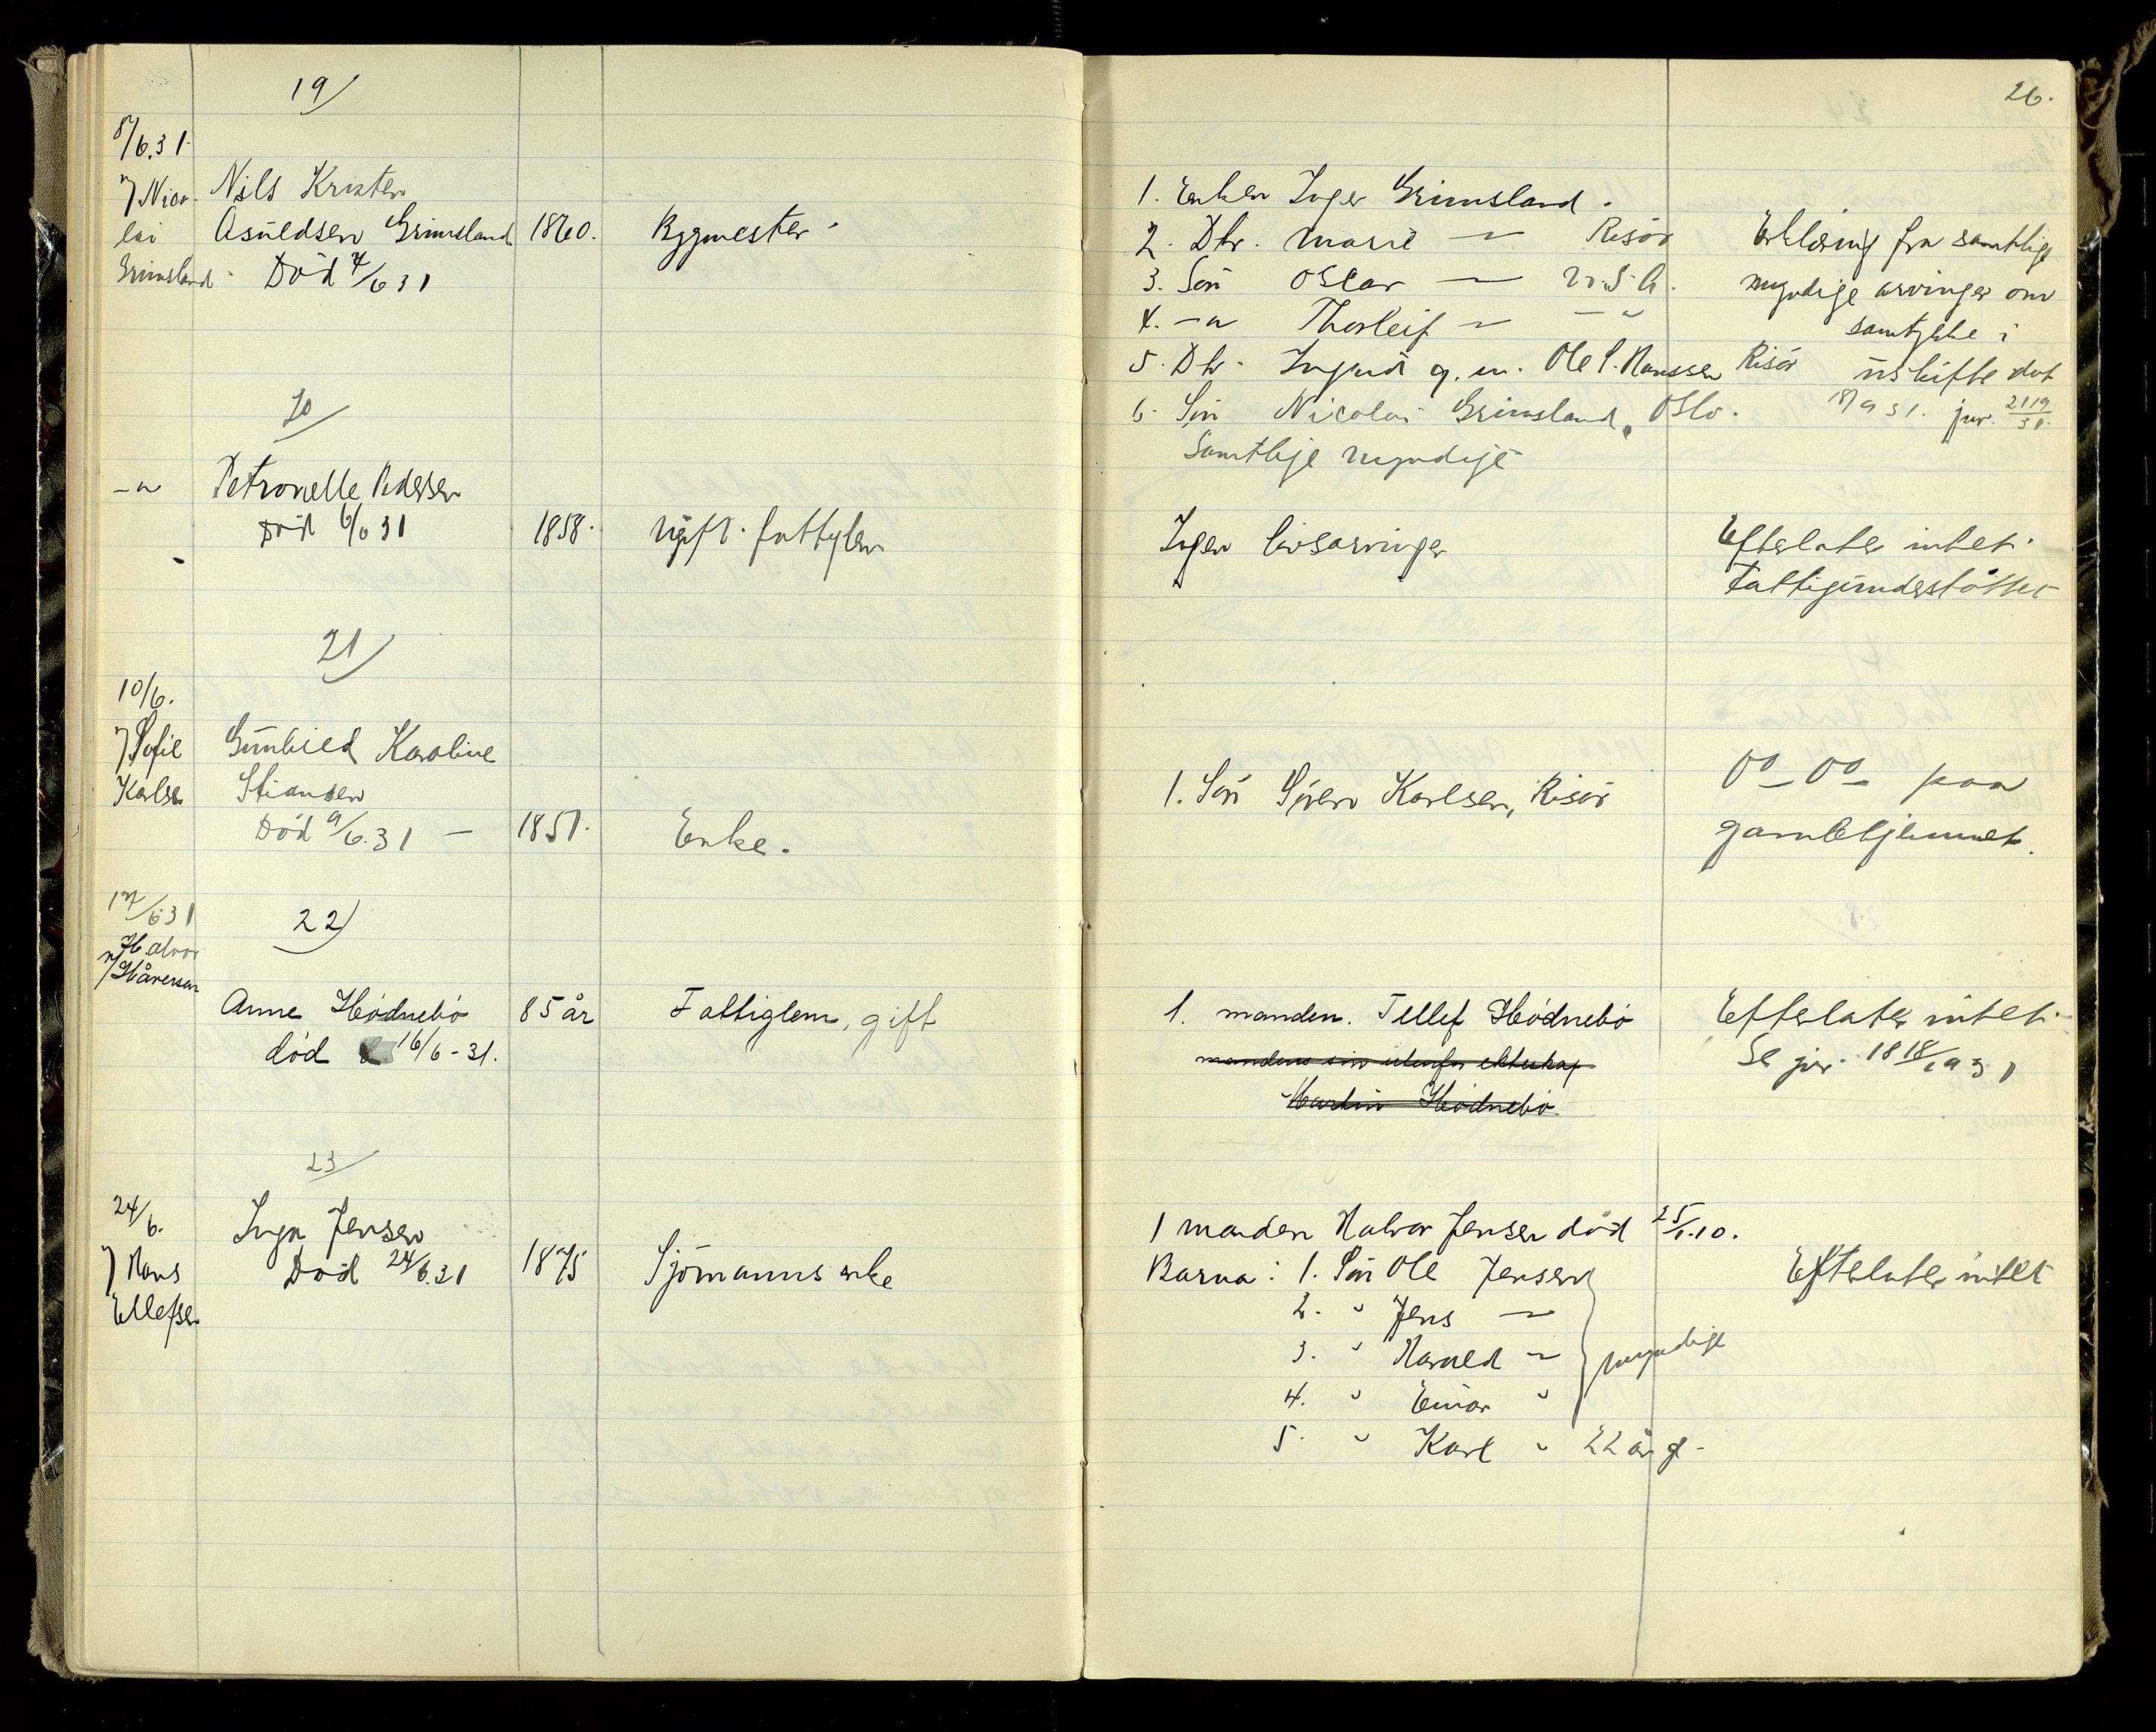 26.
19/
8/6.31
v/ Nico-
lai
Grimsland
Nils Kristen
Asuldsen Grimsland
Død 7/6 31
1860.
Byggmester
1. Enken Inger Grimsland.
2. Dtr. Marie — Risør
3. Søn Oscar — U.S.A.
4. —"— Thorleif — —"—
5. Dtr. Ingrid g. m. Ole S. Hanssen Risør
6. Søn Nicolai Grimsland, Oslo.
Samtlige myndige
Erklæring fra samtlige
myndige arvinger om
samtykke i
uskifte dat
18/9 31. jnr. 2119/31.
20/
—"—
Petronelle Pedersen
Død 6/6 31
1858.
Ugift. fattiglem
Ingen livsarvinger
Efterlater intet.
Fattigunderstøttet
21/
10/6.
v/ Sofie
Karlsen
Gunhild Karoline
Stiansen
Død 9/6.31 —
1851.
Enke.
1. Søn Søren Karlsen, Risør
Do — Do paa
gamlehjemmet.
22/
17/6 31
v/ Halvor
Håversen
Anne Hødnebø
død 16/6 - 31.
85 år
Fattiglem, gift
1. manden. Tellef Hødnebø
mandens søn utenfor ekteskap
Martin Hødnebø
Efterlater intet.
Se jnr. 1818/1931
23/
24/6.
v/ Hans
Ellefsen
Inga Jensen
Død 24/6.31
1875
Sjømanns enke
1 manden Halvor Jensen død 25/1.10.
Barna: 1. Søn Ole Jensen
2. " Jens —
3. " Harald —"—
4. " Einar "
myndige
5. " Karl " 22 år g.
Efterlater intet